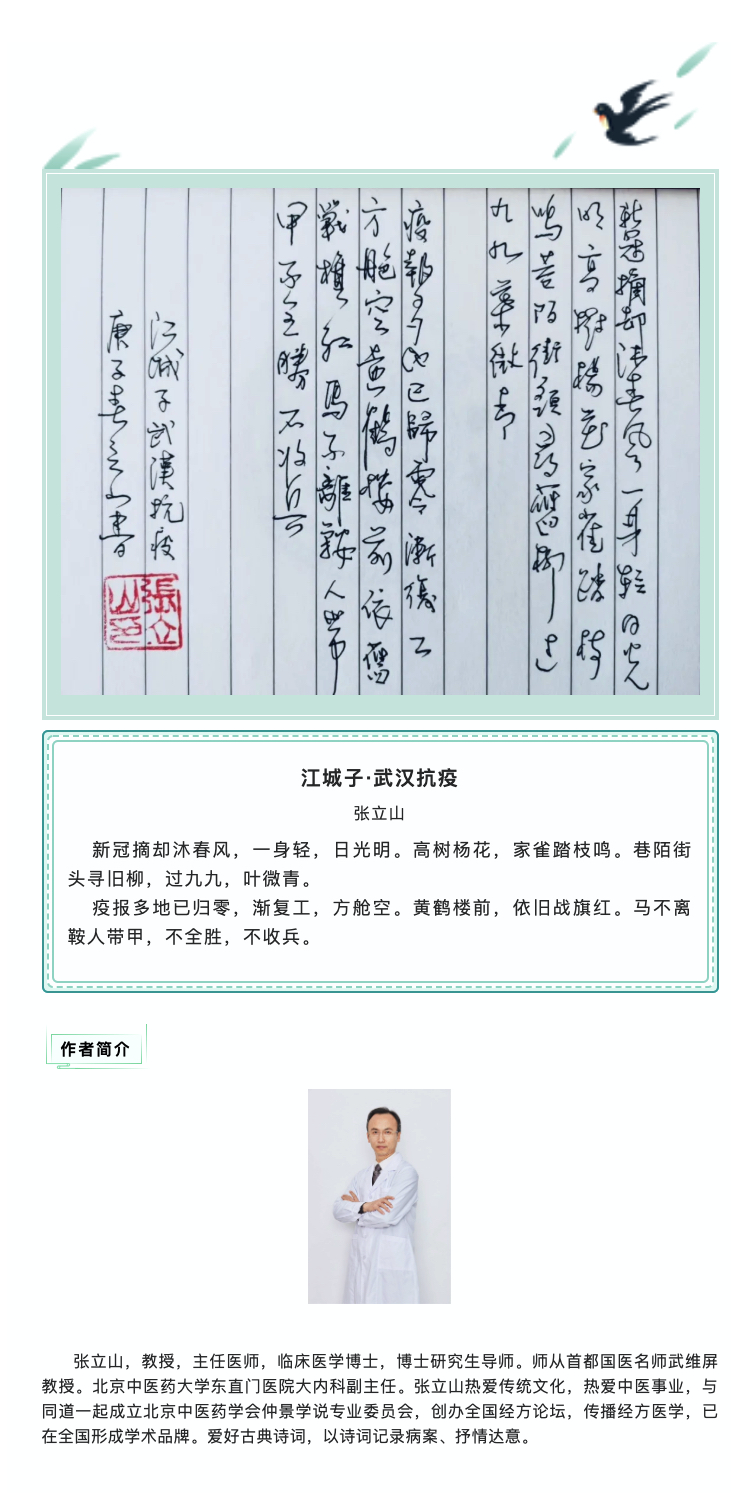 新冠摘却沐春风一身轻日光
明高树杨花家雀踏枝
鸣巷陌街頭尋舊柳过
九九葉微青
疫報多地已歸零漸復工
方艙空黄鶴楼前依舊
戰旗红馬不離鞍人带
甲不全勝不收兵
江城子武漢抗疫
庚子春立山書
張立
山印
江城子·武汉抗疫
张立山
新冠摘却沐春风，一身轻，日光明。高树杨花，家雀踏枝鸣。巷陌街
头寻旧柳，过九九，叶微青。
疫报多地已归零，渐复工，方舱空。黄鹤楼前，依旧战旗红。马不离
鞍人带甲，不全胜，不收兵。
作者简介
张立山，教授，主任医师，临床医学博士，博士研究生导师。师从首都国医名师武维屏
教授。北京中医药大学东直门医院大内科副主任。张立山热爱传统文化，热爱中医事业，与
同道一起成立北京中医药学会仲景学说专业委员会，创办全国经方论坛，传播经方医学，已
在全国形成学术品牌。爱好古典诗词，以诗词记录病案、抒情达意。